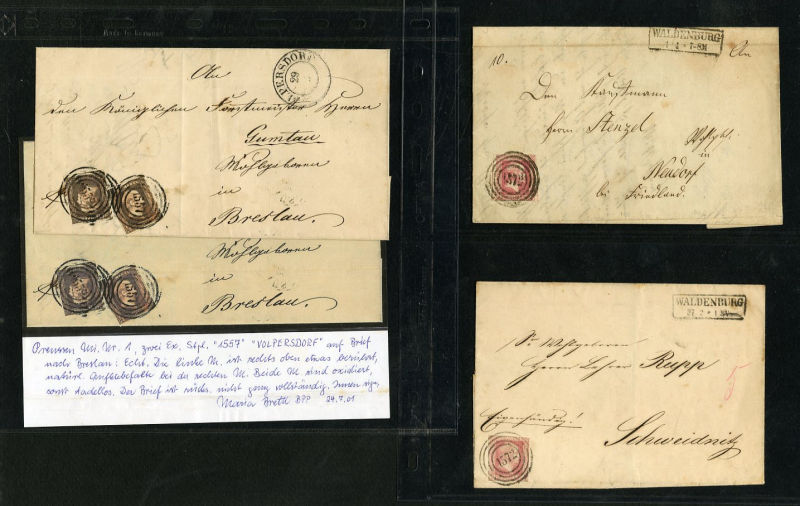 VOLPERSDORF
29
An
den Königlichen Forstmeister Herrn
Gumtau
Wohlgeboren
in
Breslau.
1557
1557
Wohlgeboren
in
Breslau.
1557
1557
Preussen Mi. Nr. 1, zwei Ex. Stpl. "1557" "VOLPERSDORF" auf Brief
nach Breslau: Echt. Die linke M. ist rechts oben etwas berührt,
natürl. Aufklebefalte bei der rechten M. Beide M sind oxidiert,
sonst tadellos. Der Brief ist rücks. nicht ganz vollständig. Innen sign.
Maria Brettl BPP 24.7.01
WALDENBURG
4 * 7-8M
10.
An
Den
Herrn Stenzel
in
Neudorf
bei Friedland.
1572
WALDENBURG
27 2 * 1
Sr. Wohlgeboren
Herrn Lehrer Rupp
Eigenhändig!
Schweidnitz
1572